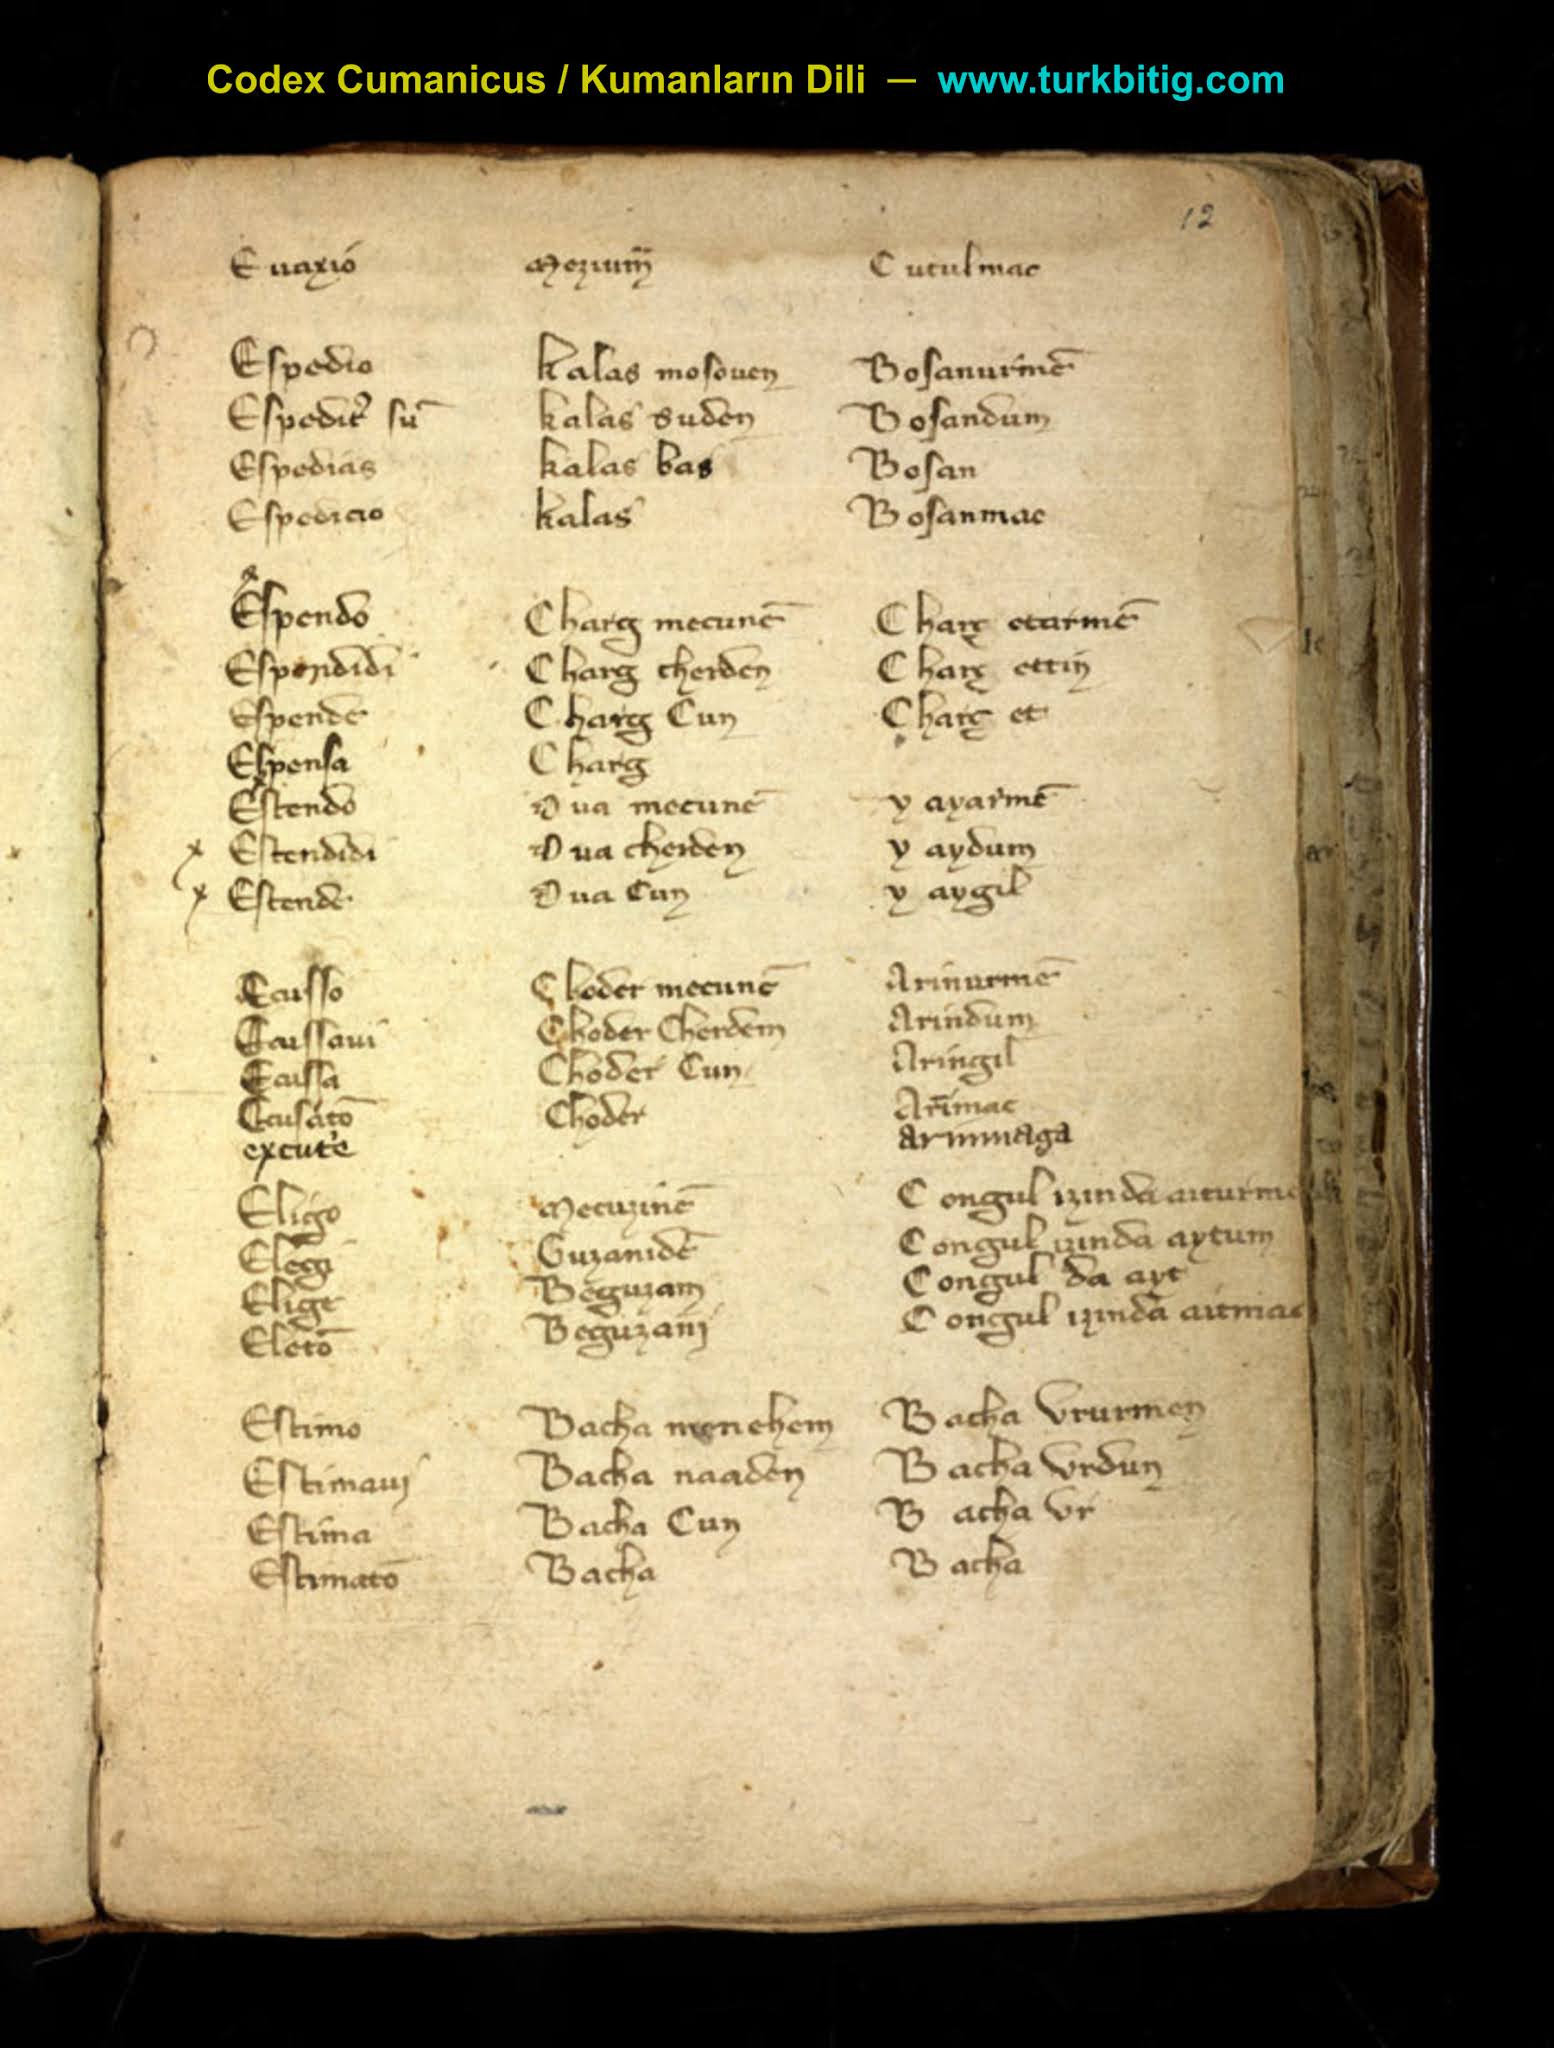 Codex Cumanicus / Kumanların Dili — www.turkbitig.com
12
Euaxio̅ Mezium̅ Cutulmac
Espedio kalas mosouen Bosanurme̅
Espedit᾽ su̅ kalas suden Bosandum
Espedias kalas bas Bosan
Espedicio kalas Bosanmac
x
Espendo Charg mecune̅ Charç etarme̅
Espendidi Charg cherden Charç ettin
Espende Charg Cun Charç et
Espensa Charg
Estendo Dua mecune̅ yayarme̅
x Estendidi Dua cherden yaydum
x Estende Dua Cun yaygil
Ecusso Choder mecune̅ Arinurme̅
Ecussaui Choder Cherdem Arindum
Ecussa Choder Cun Aringil
Ecusato̅ Choder Ari̅mac
excut᾽e arinmaga
Eligo Mecuzine̅ Congul izinda aiturme
Elegi Guzanide̅ Congul izinda aytum
Elige Beguzam Congul da ayt
Eleto̅ Beguzani Congul izinda aitmac
Estimo Bacha menehem Bacha vrurmen
Estimaui Bacha naaden Bacha vrdun
Estima Bacha Cun Bacha vr
Estimato̅ Bacha Bacha